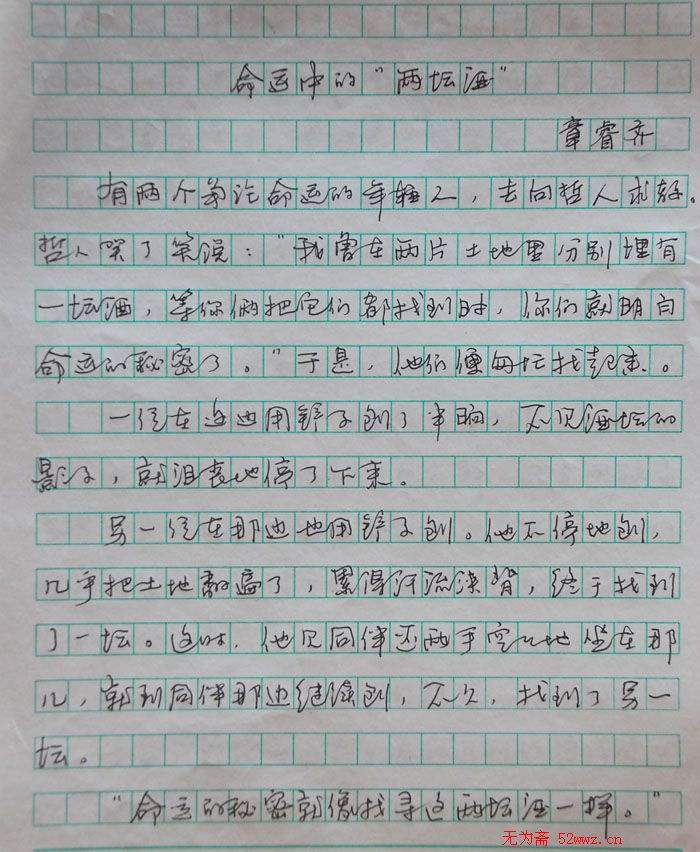 命运中的“两坛酒”
章睿齐
有两个争论命运的年轻人，去向哲人求解。
哲人笑了笑说：“我曾在两片土地里分别埋有
一坛酒，等你俩把它们都找到时，你们就明白
命运的秘密了。”于是，他们便每坛找起来。
一位在这边用锌子刨了半晌，不见酒坛的
影子，就沮丧地停了下来。
另一位在那边也用锌子刨。他不停地刨，
几乎把土地翻遍了，累得汗流浃背，终于找到
了一坛。这时，他见同伴还两手空空地坐在那
儿，就到同伴那边继续刨，不久，找到了另一
坛。
“命运的秘密就像找寻这两坛酒一样。”
无为斋 52wwz.cn